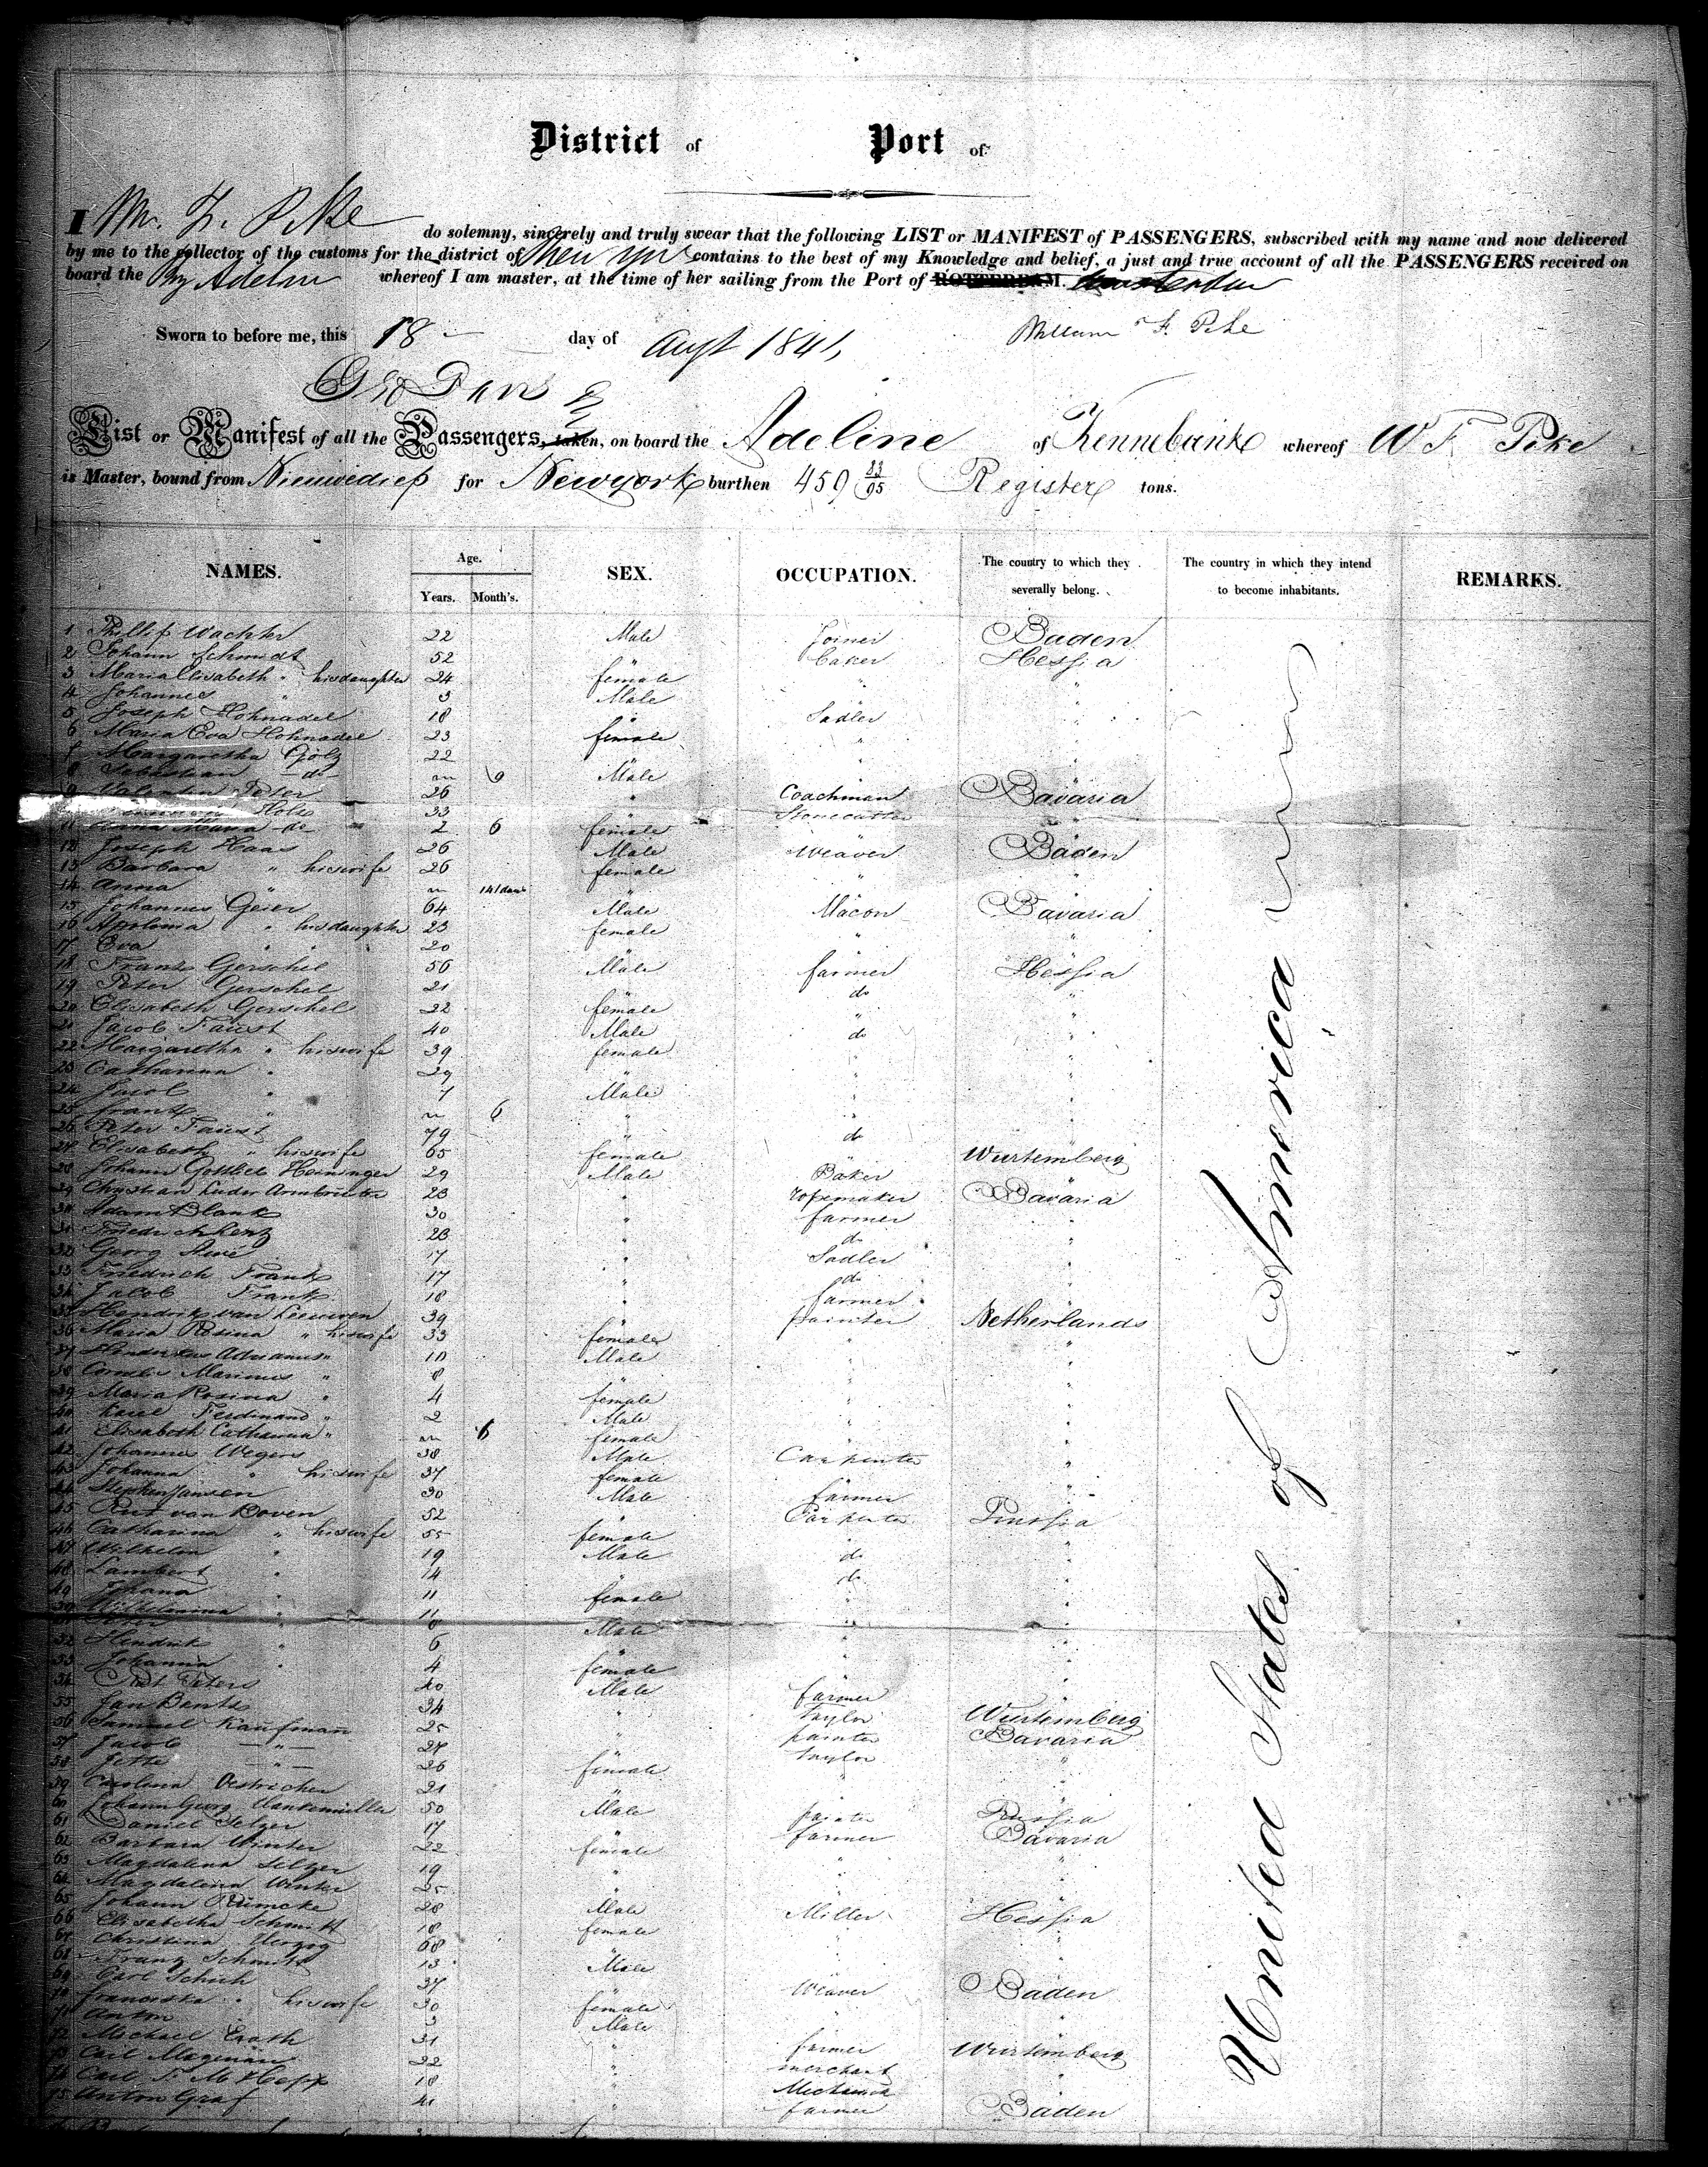 District of Port of
I Wm. F. Pike do solemny, sincerely and truly swear that the following LIST or MANIFEST of PASSENGERS, subscribed with my name and now delivered
by me to the collector of the customs for the district of New York contains to the best of my Knowledge and belief, a just and true account of all the PASSENGERS received on
board the Adeline whereof I am master, at the time of her sailing from the Port of ROTTERDAM. Amsterdam
William F. Pike
Sworn to before me, this 18 day of Augt 1841,
Geo Davis
List or Manifest of all the Passengers, taken, on board the Adeline of Kennebunk whereof W F Pike
is Master, bound from Nieuwediep for Newyork burthen 459 83/95 Register tons.
NAMES. Age. Years. Month's. SEX. OCCUPATION. The country to which they severally belong. The country in which they intend to become inhabitants. REMARKS.
United States of America
1 Phillip Wachter 22 Male Joiner Baden
2 Johann Schmidt 52 baker Hessia
3 Maria Elisabeth " his daughter 24 female "
4 Johannes " 3 Male "
5 Joseph Hohnadel 18 " Sadler "
6 Maria Eva Hohnadel 23 female " "
7 Margaretha Götz 22 " "
8 Sebastian do 9 Male "
9 Valentin 26 " Coachman Bavaria
Holz 33 Stonecutter "
11 Anna Maria do 2 6 female "
12 Joseph Haas 26 Male Weaver Baden
13 Barbara " his wife 26 female " "
14 Anna " 14 days "
15 Johannes Geier 64 Male Macon Bavaria
16 Apolonia " his daughter 23 female " "
17 Eva " 20 " "
18 Franz Gerschel 56 Male farmer Hessia
19 Peter Gerschel 21 " do "
20 Elisabeth Gerschel 22 female " "
21 Jacob Faust 40 Male do "
22 Margaretha " his wife 39 female " "
23 Catharina " 29 " "
24 Jacob " 7 Male " "
25 Frank " 6 " "
26 Peter Faust 79 " do "
27 Elisabeth " his wife 65 female "
28 Johann Gottlieb Heininger 29 Male Baker Wurtemberg
29 Christian 28 " ropemaker Bavaria
30 Adam Blank 30 " farmer "
31 Friedrich Lenz 28 " do "
32 Georg 17 " Sadler "
33 Friedrich Frank 17 " do "
34 Jacob Frank 18 " farmer "
35 Hendrik van Leeuwen 39 painter Netherlands
36 Maria Rosina " his wife 33 female " "
37 Hendericus Adrianus " 10 Male " "
38 Cornelis Marinus " 8 " "
39 Maria Rosina " 4 female " "
40 Karel Ferdinand " 2 Male " "
41 Elisabeth Catharina " 6 female " "
42 Johannes Wegers 38 Male Carpenter "
43 Johanna " his wife 37 female "
44 Stephen Jansen 30 Male farmer "
45 van Boven 52 Carpenter Prussia
46 Catharina " his wife 55 female "
47 Wilhelm " 19 Male do "
48 Lambert " 14 " do "
49 Johana " 11 female " "
50 Wilhelmina " 11 " "
8 Male "
52 Hendrik " 6 " "
53 Johanna " 4 female " "
54 Peters 40 Male farmer "
55 Jan 34 " taylor Wurtemberg
56 Samuel Kaufman 25 " painter Bavaria
57 Jacob " 27 " taylor "
58 Jette " 26 female "
59 Carolina Oestricher 21 " "
60 Johann Georg 50 Male painter Prussia
61 Daniel Selzer 17 farmer Bavaria
62 Barbara Winter 22 female " "
63 Magdalena Selzer 19 " "
64 Magdalena Winter 25 " "
65 Johann 28 Male Miller Hessia
66 Elisabetha Schmitt 18 female "
67 Christina Herzog 68 "
68 Franz Schmitt 13 Male "
69 Carl Schich 37 Weaver Baden
70 Franciska " his wife 30 female "
71 Anton 3 Male "
72 Michael Erath 31 " farmer Wurtemberg
73 Carl 22 " merchant "
74 Carl Hepp 18 " Mechanic "
75 Anton Graf 41 " farmer Baden